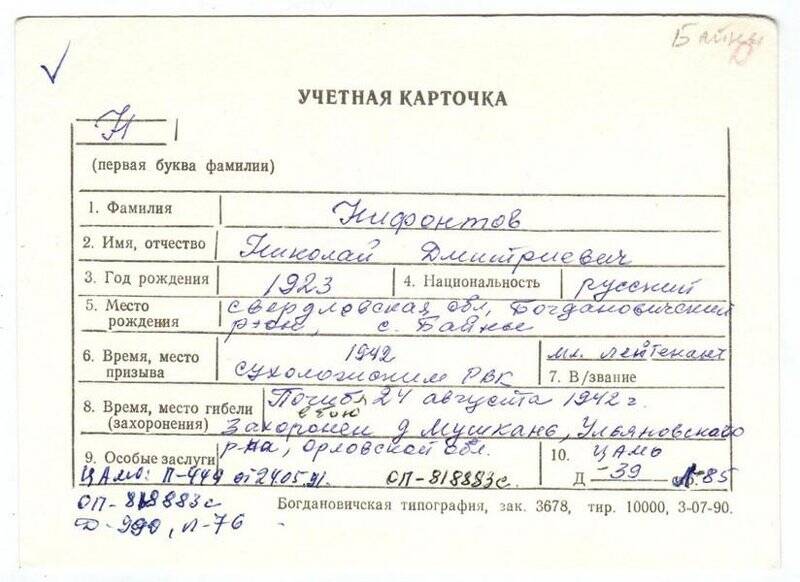 Байны
УЧЕТНАЯ КАРТОЧКА
Н
(первая буква фамилии)
1. Фамилия Нифонтов
2. Имя, отчество Николай Дмитриевич
3. Год рождения 1923 4. Национальность русский
5. Место рождения свердловская обл, Богдановичский
р-он, с. Байны
6. Время, место призыва 1942
сухоложским РВК
мл. лейтенант
7. В/звание
8. Время, место гибели (захоронения) Погиб 24 августа 1942 г.
в бою
Захоронен д Мушкань, Ульяновского
р-на, Орловской обл.
9. Особые заслуги
10. ЦАМО
ЦАМО: П-449 от 24.05.91. ОП-818883с. Д -39 Л-85
ОП-818883с
Д-990, л-76
Богдановичская типография, зак. 3678, тир. 10000, 3-07-90.